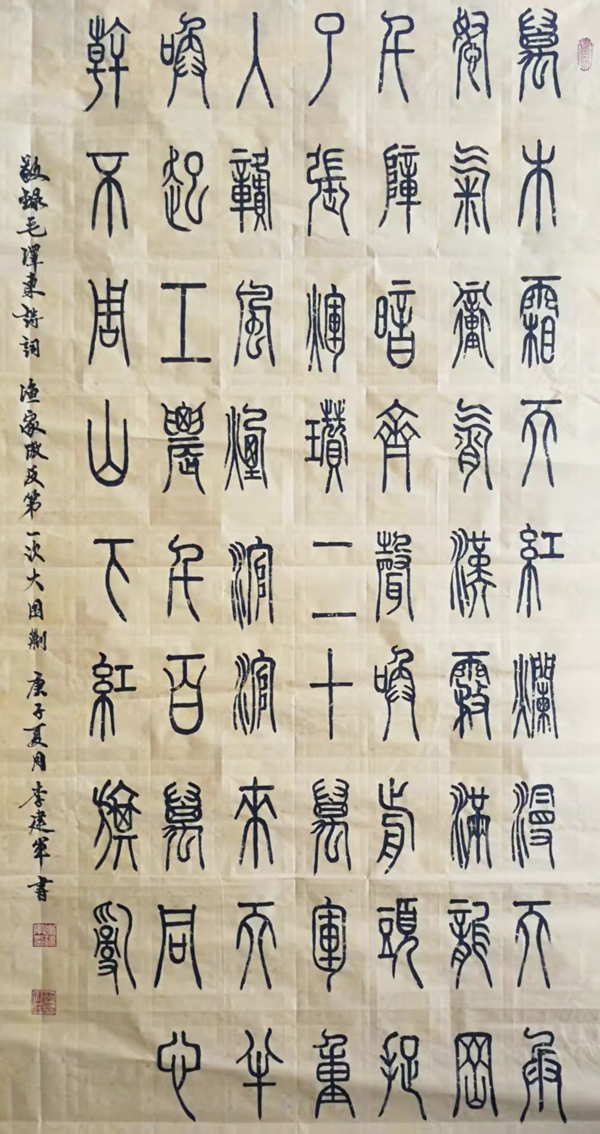 萬木霜天紅爛漫天兵
怒氣衝霄漢霧滿龍岡
千障暗齊聲喚前頭捉
了張輝瓚二十萬軍重
入贛風煙滾滾來天半
喚起工農千百萬同心
幹不周山下紅旗亂
敬録毛澤東詩詞 渔家傲反第一次大围剿 庚子夏月 李建军書